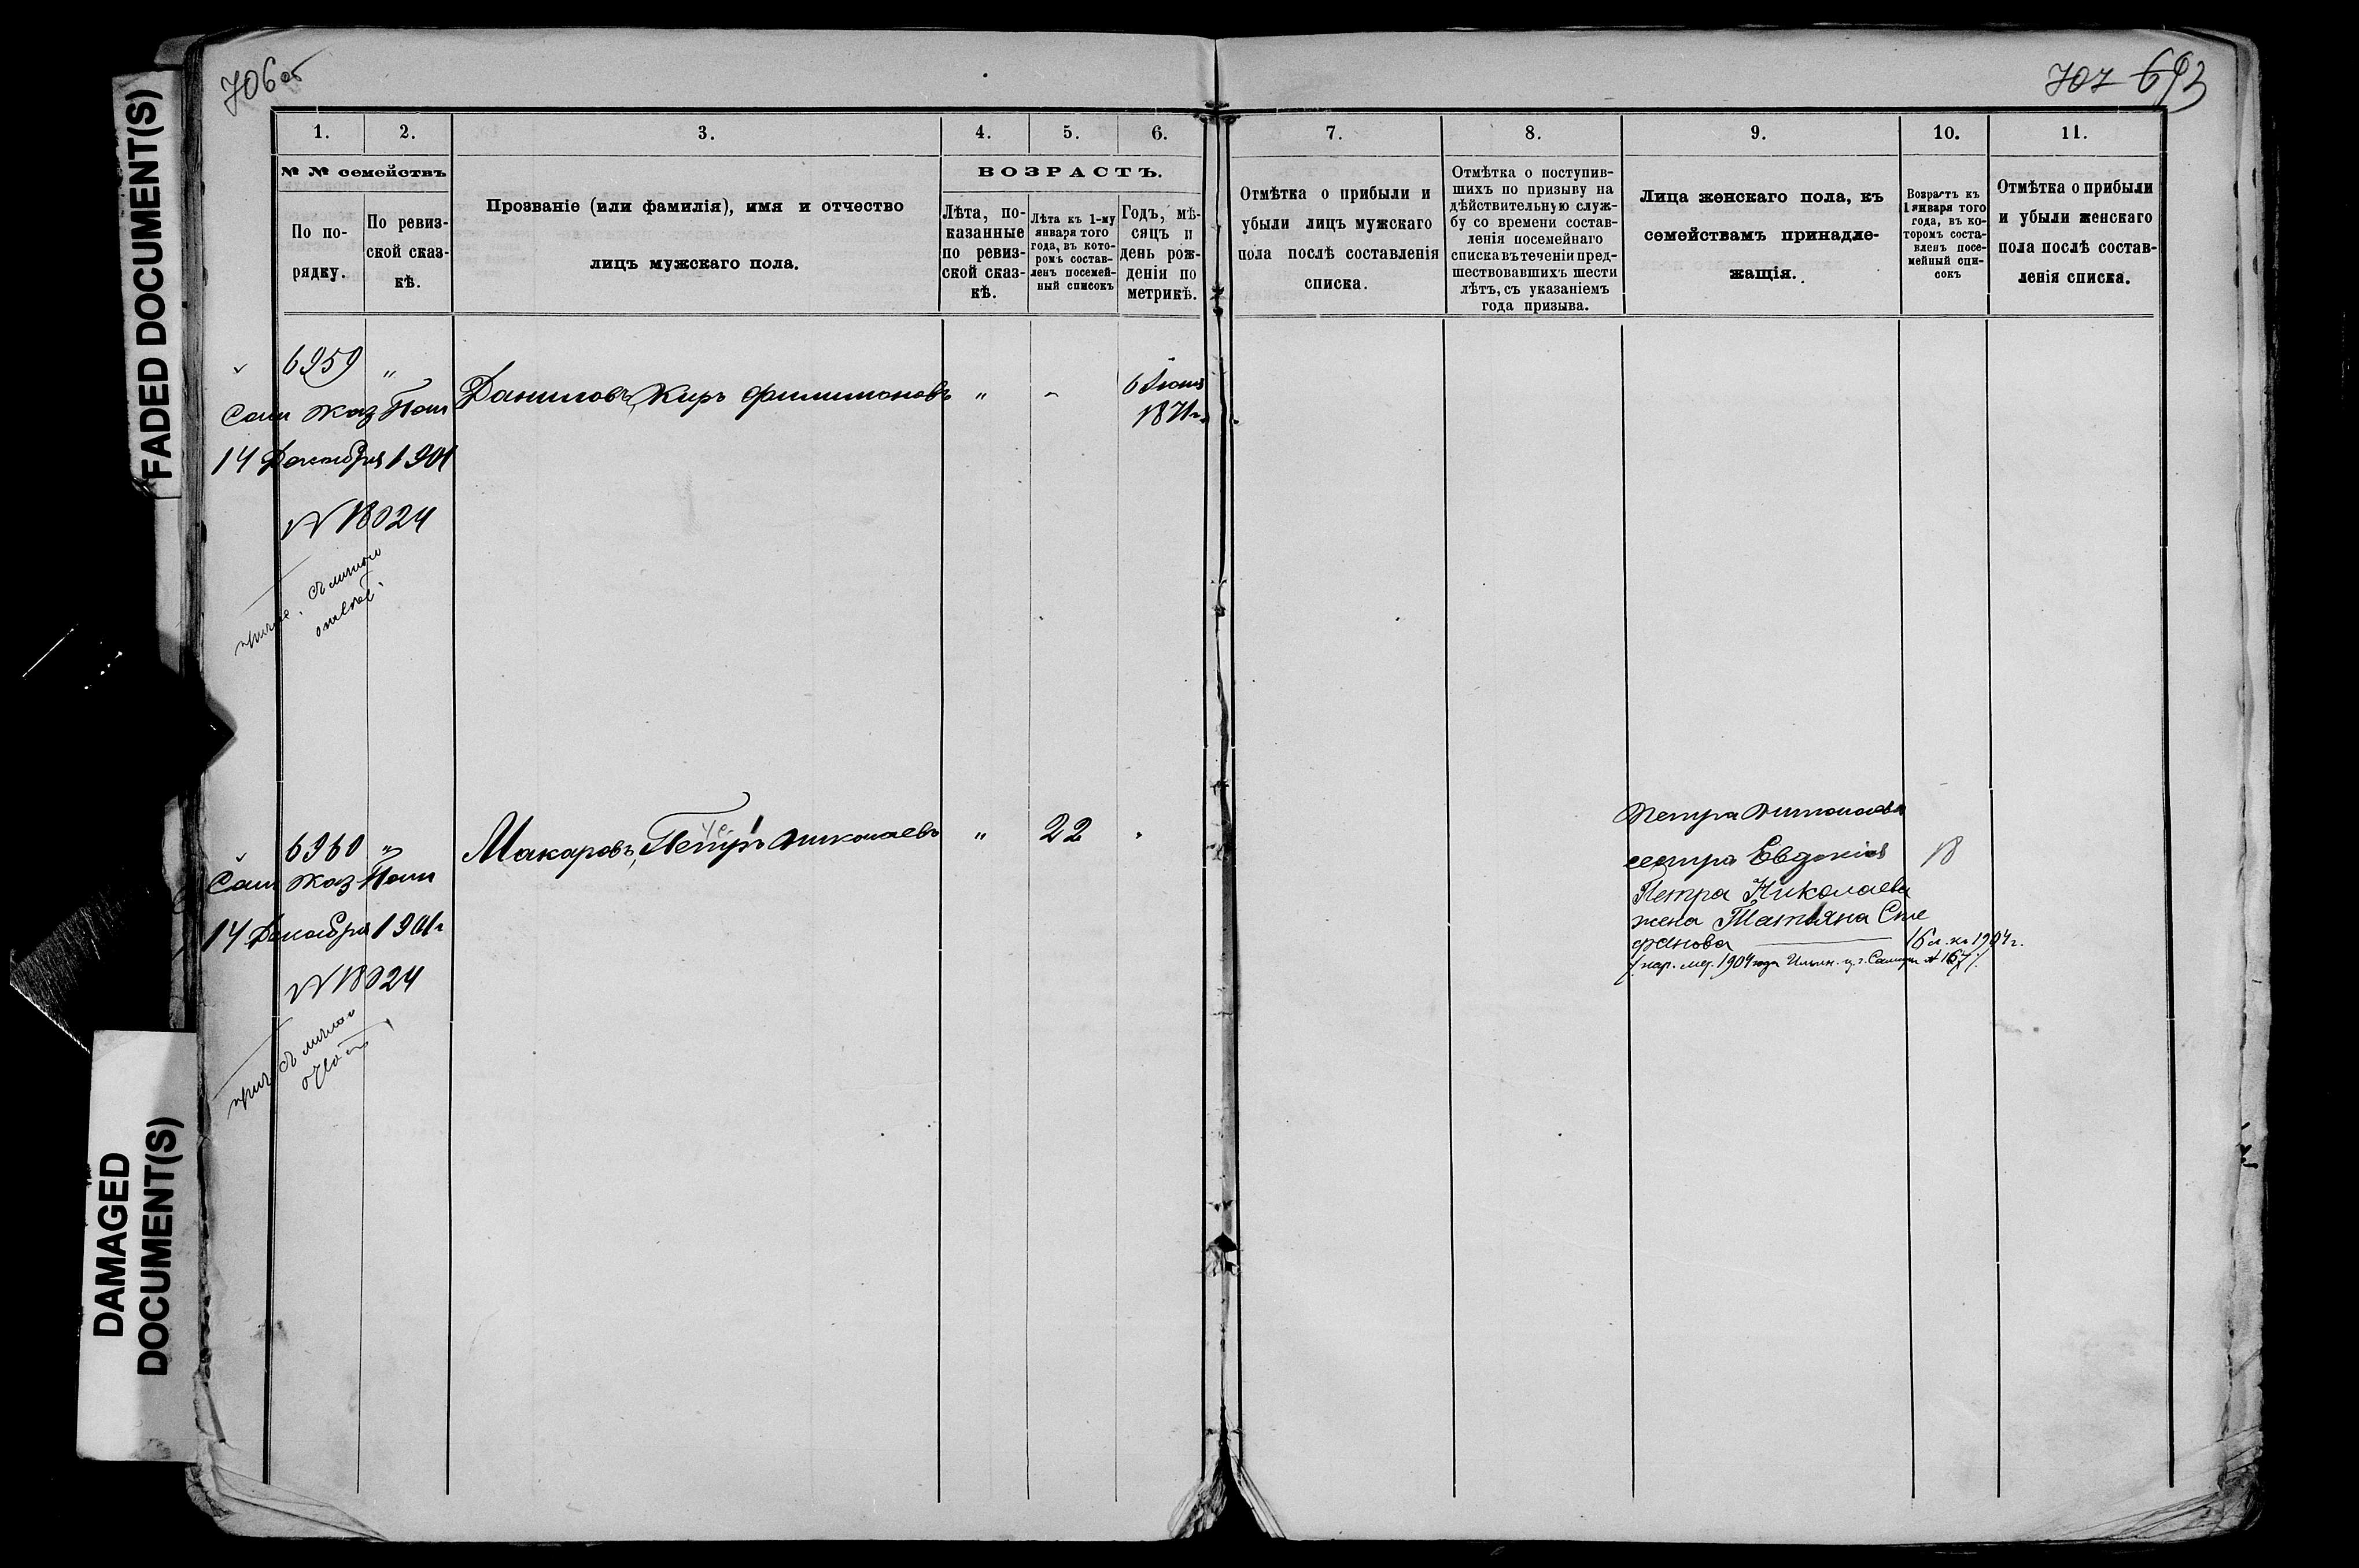 706об
707 693
FADED DOCUMENT(S)
DAMAGED
DOCUMENT(S)
1.
2.
3.
4.
5.
6.
№ № семействъ
По по-
рядку.
По ревиз-
ской сказ-
кѣ.
Прозваніе (или фамилія), имя и отчество
лицъ мужскаго пола.
ВОЗРАСТЪ.
Лѣта, по-
казанные
по ревиз-
ской сказ-
кѣ.
Лѣта къ 1-му
января того
года, въ кото-
ромъ состав-
ленъ посемей-
ный списокъ
Годъ, мѣ-
сяцъ и
день рож-
денія по
метрикѣ.
7.
8.
9.
10.
11.
Отмѣтка о прибыли и
убыли лицъ мужскаго
пола послѣ составленія
списка.
Отмѣтка о поступив-
шихъ по призыву на
дѣйствительную служ-
бу со времени состав-
ленія посемейнаго
списка въ теченіи пред-
шествовавшихъ шести
лѣтъ, съ указаніемъ
года призыва.
Лица женскаго пола, къ
семействамъ принадле-
жащія.
Возрастъ къ
1 января того
года, въ ко-
торомъ соста-
вленъ посе-
мейный спи-
сокъ
Отмѣтка о прибыли
и убыли женскаго
пола послѣ состав-
ленія списка.
6959 "
Сам Каз Пал
14 Декабря 1901
N 18024
Даниловъ, Киръ Филимоновъ " "
6 Іюня
1871г.
6960 "
Сам Каз Пал
14 Декабря 1901г
N 18024
Макаровъ, Петръ Николаевъ " 22 "
Петра Николаева
сестра Евдокія 18
Петра Николаева
жена Татьяна Сте
фанова 16 л. къ 1904г.